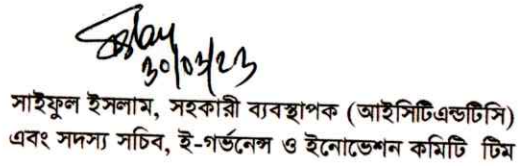 30/03/23
সাইফুল ইসলাম, সহকারী ব্যবস্থাপক (আইসিটিএন্ডটিসি)
এবং সদস্য সচিব, ই-গর্ভনেন্স ও ইনোভেশন কমিটি টিম